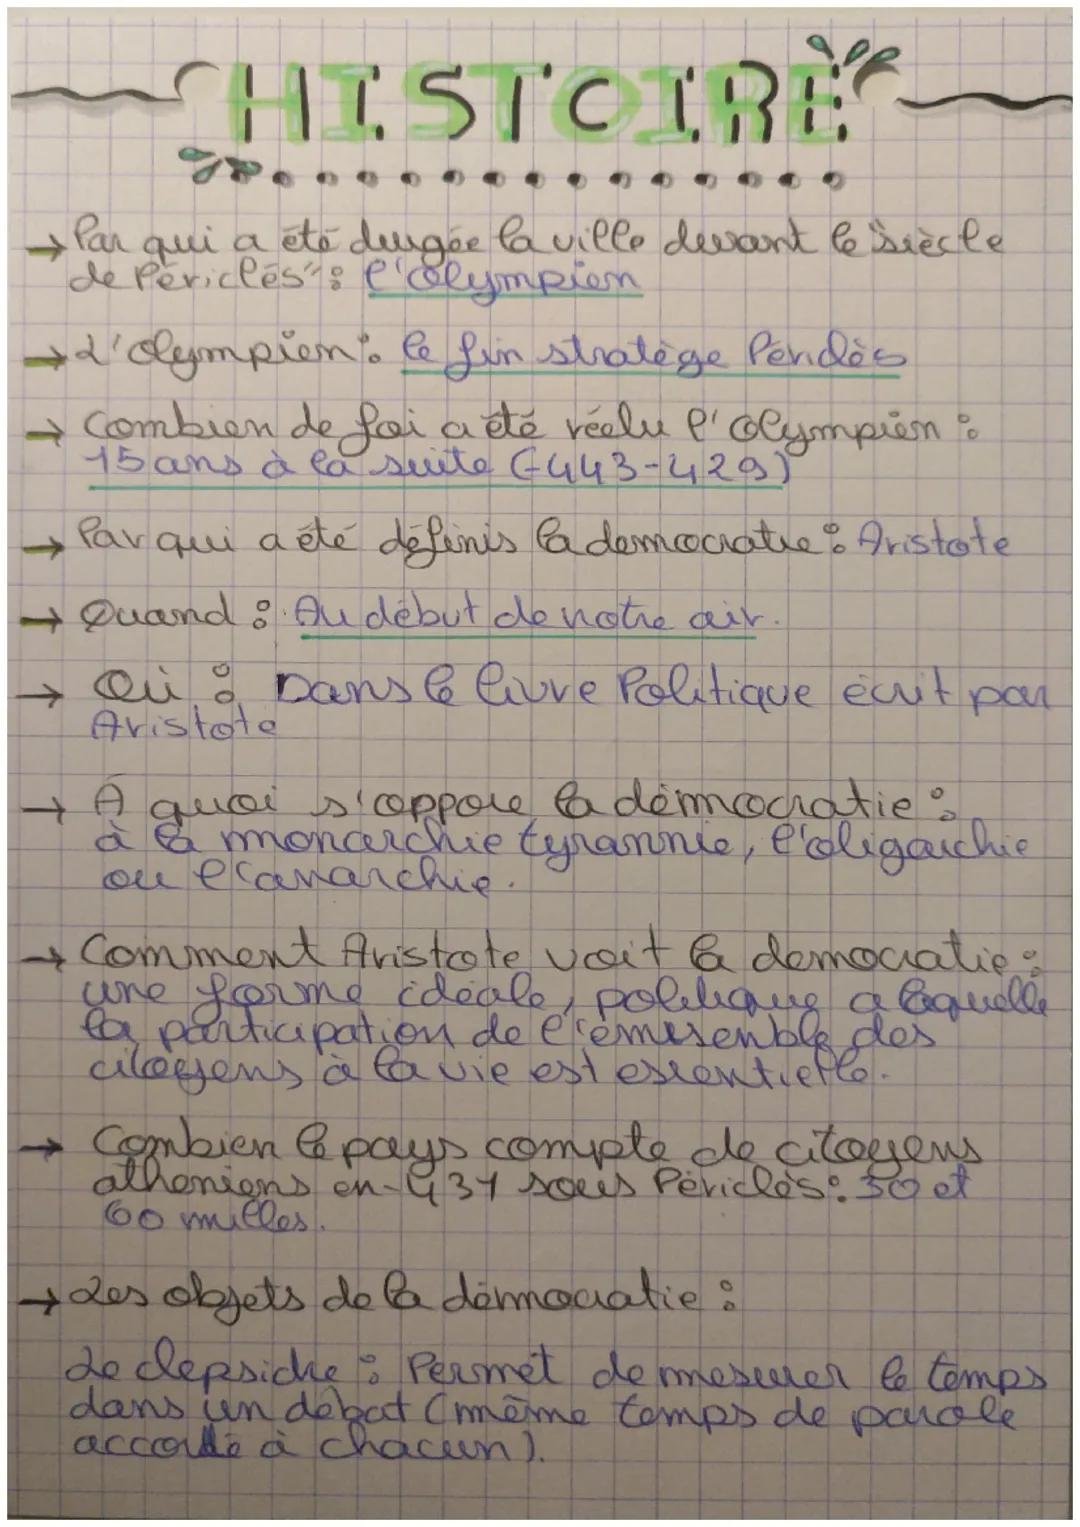 HISTOIRE
→ Par qui a été dirigée la ville devant le "siècle
de Périclès" : l'olympien
→ L'olympien : le fin stratège Périclès
→ Combien de foi a été réélu l'Olympien :
15 ans à la suite (-443-429)
→ Par qui a été définis la democratie : Aristote
→ Quand : Au début de notre air.
→ Où : Dans le livre Politique écrit par
Aristote
→ À quoi s'oppose la démocratie :
à la monarchie tyrannie, l'oligarchie
ou l'anarchie.
→ Comment Aristote voit la democratie :
une forme idéale, politique a laquelle
la participation de l' des
citoyens à la vie est essentielle.
→ Combien le pays compte de citoyens
atheniens en -431 sous Périclès : 30 et
60 milles.
→ Les objets de la démocratie :
Le clepsidre : Permet de mesurer le temps
dans un débat (même temps de parole
accordé à chacun).